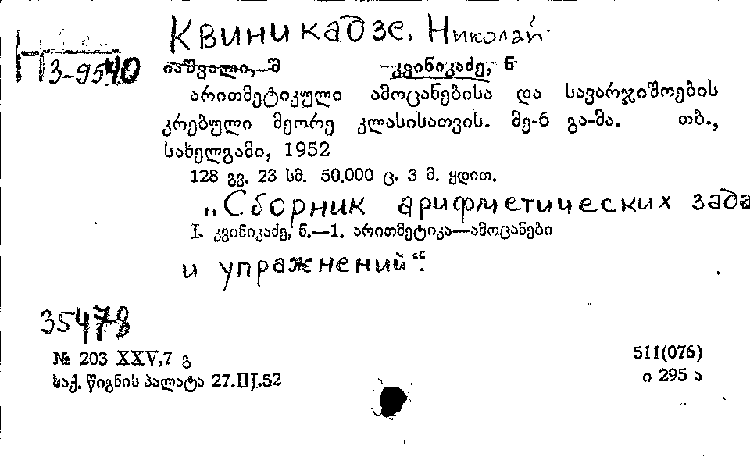 Квиникадзе, Николай
Н 3-9540
იაშვილი, შ კვინიკაძე, ნ
არითმეტიკული ამოცანებისა და სავარჯიშოების
კრებული მეორე კლასისათვის. მე-6 გა-მა. თბ.,
სახელგამი, 1952
128 გვ. 23 სმ. 50.000 ც. 3 მ. ყდით.
„Сборник арифметических зада
I. კვინიკაძე, ნ.—1. არითმეტიკა—ამოცანები
и упражнений“.
35478
№ 203 XXV,7 გ 511(076)
საქ. წიგნის პალატა 27.III.52 ი 295 ა